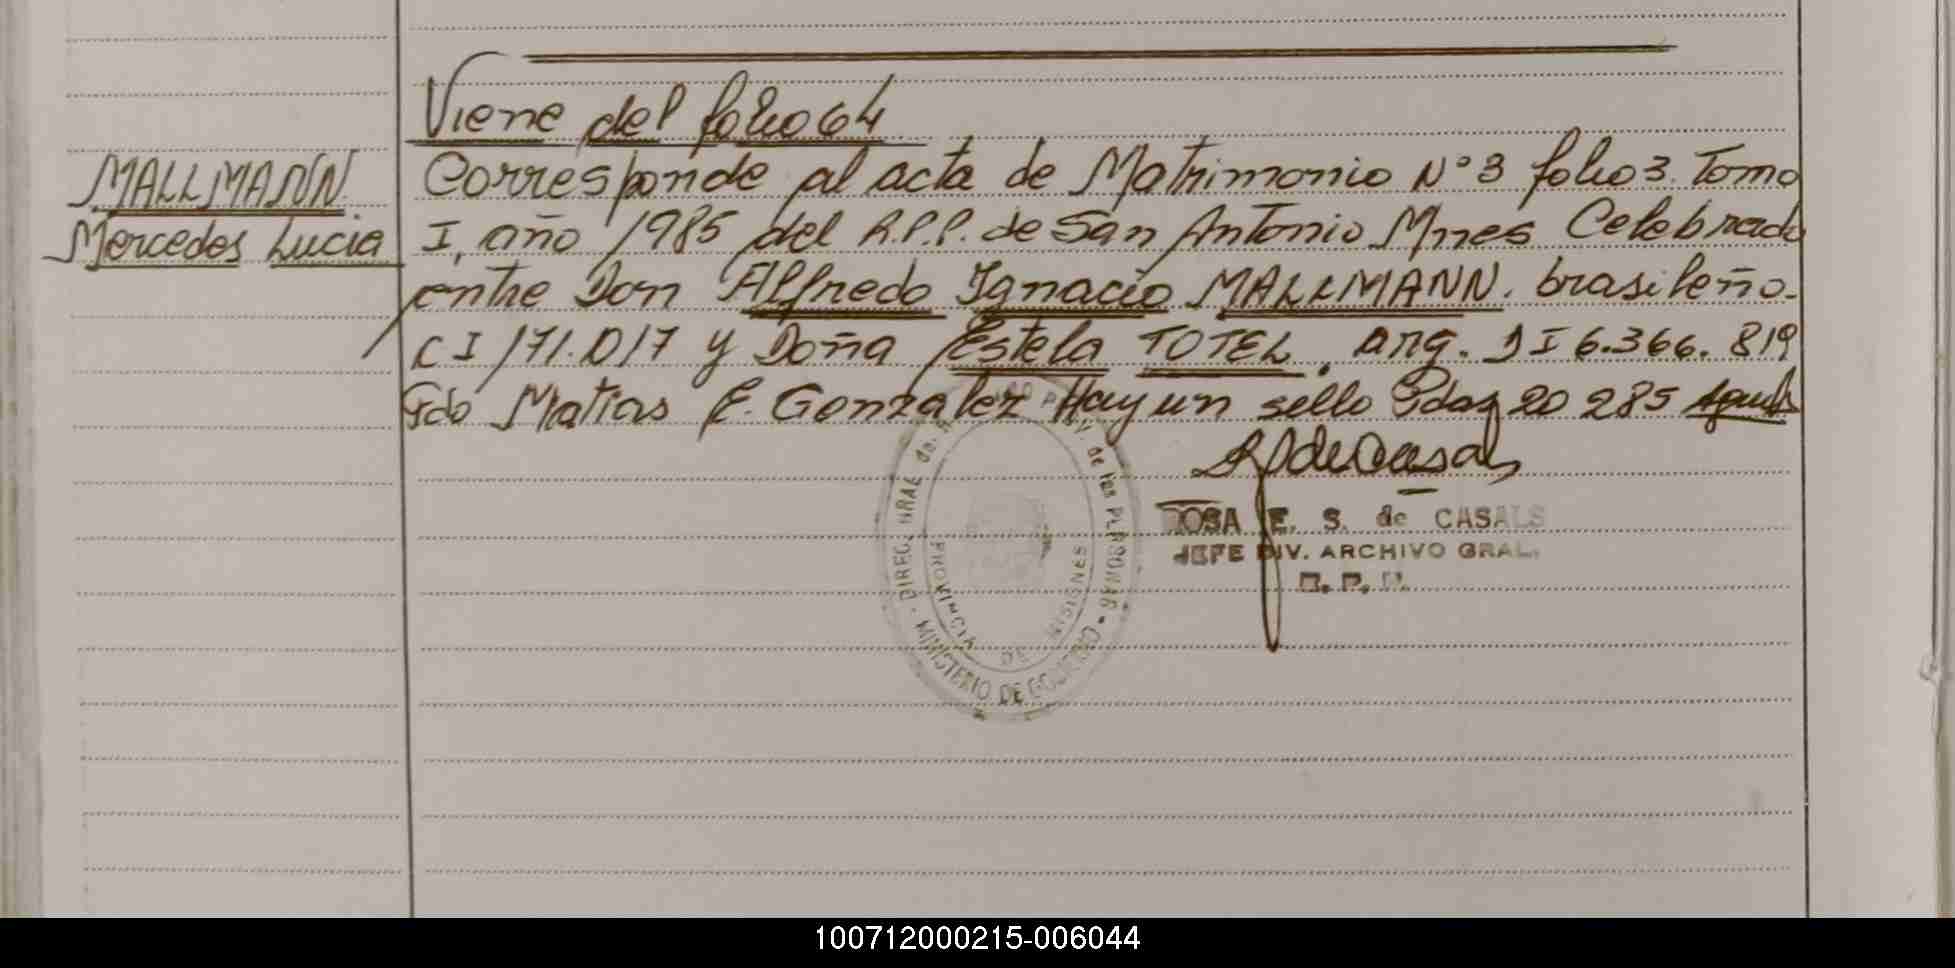 Viene del folio 64
MALLMANN.
Mercedes Lucia
Corresponde al acta de Matrimonio N° 3 folio 3. Tomo
I, año 1985 del R.P.P. de San Antonio Mnes Celebrado
entre Don Alfredo Ignacio MALLMANN. brasileño.
CI 171.017 y Doña Estela TOTEL. arg. DI 6.366.819
Fdo Matias E. Gonzalez Hay un sello Pdas 20 2 85
ROSA E. S. de CASALS
JEFE DIV. ARCHIVO GRAL.
R. P. P.
DIREC. GRAL de de las PERSONAS - MINISTERIO DE GOBIERNO
PROVINCIA DE MISIONES
100712000215-006044